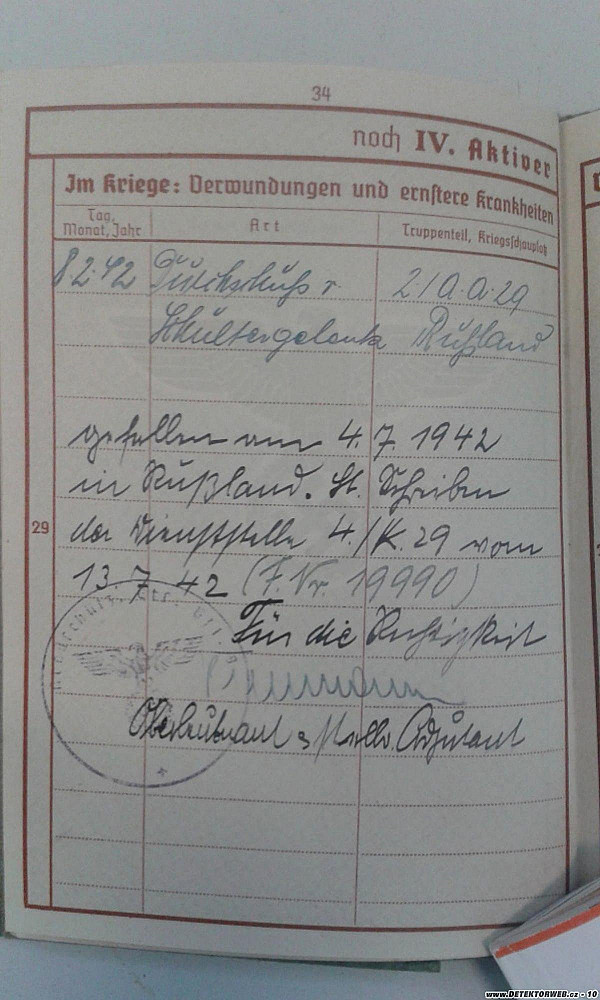 34
noch IV. Aktiver
Im Kriege: Verwundungen und ernstere Krankheiten
Tag, Monat, Jahr
Art
Truppenteil, Kriegsschauplatz
8.2.42 Durchschuß r. 2./A.A.29
Schultergelenk Rußland
gefallen am 4. 7. 1942
in Rußland. Lt. Schreiben
der Dienststelle 4./K. 29 vom
29
13. 7. 42 (F. Nr. 19990)
Für die Richtigkeit
Oberleutnant u. stellv. Adjutant
www.DETEKTORWEB.cz - 10